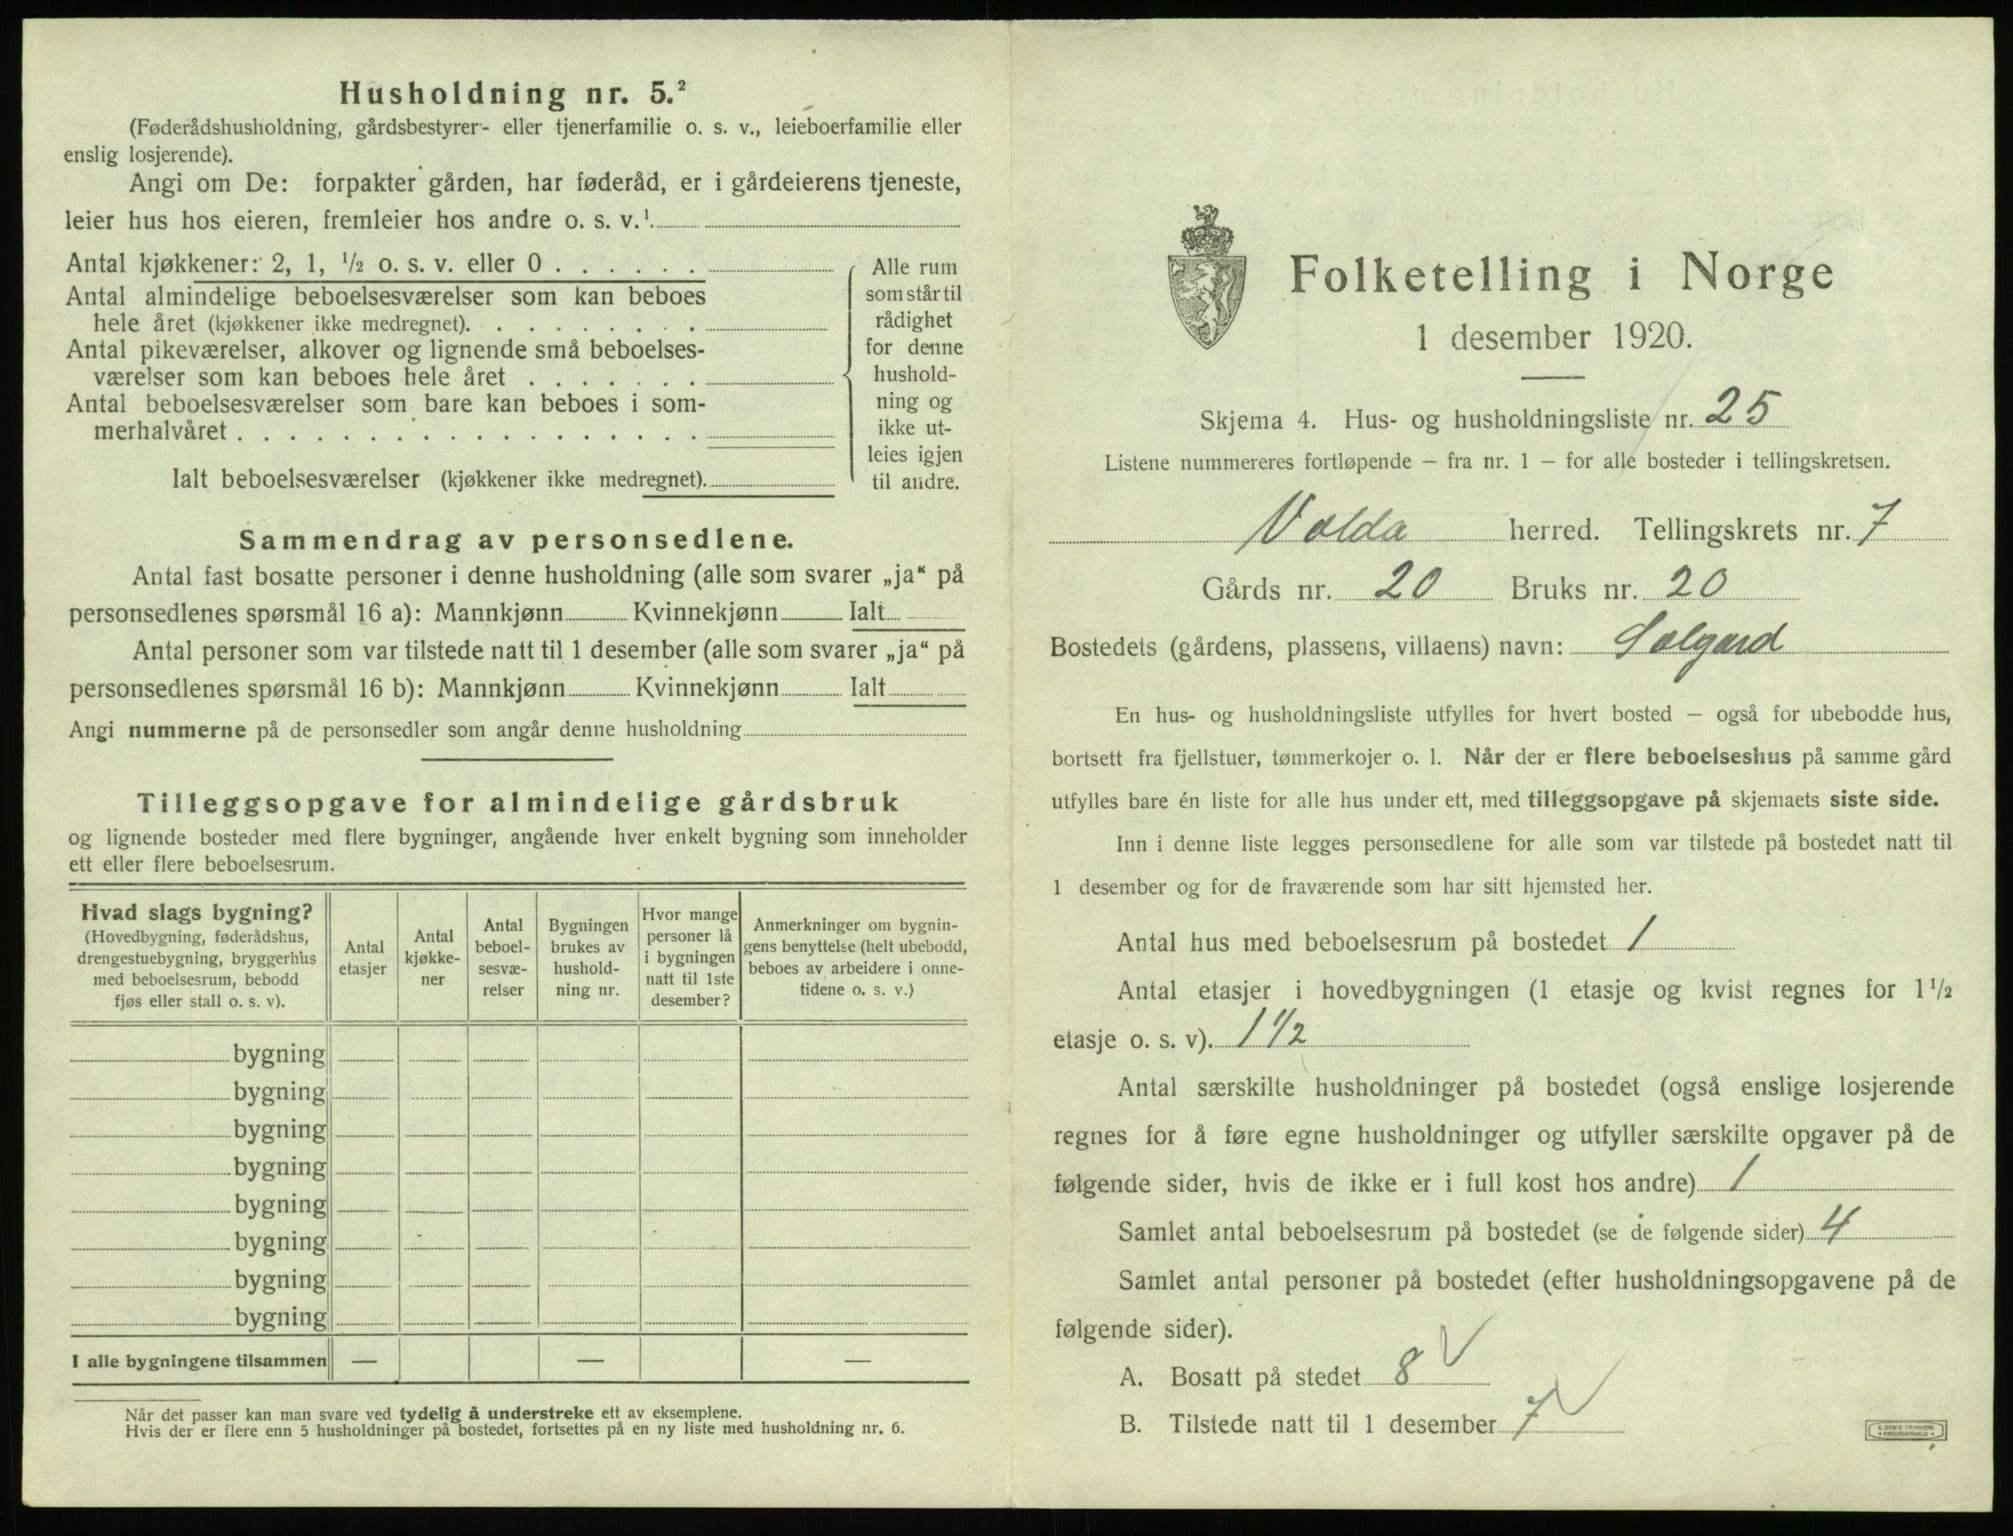 Husholdning nr. 5.²
(Føderådshusholdning, gårdsbestyrer- eller tjenerfamilie o. s. v., leieboerfamilie eller
enslig losjerende).
Angi om De: forpakter gården, har føderåd, er i gårdeierens tjeneste,
leier hus hos eieren, fremleier hos andre o. s. v.¹
Antal kjøkkener: 2, 1, ½ o. s. v. eller 0 . . . . . .
Antal almindelige beboelsesværelser som kan beboes
hele året (kjøkkener ikke medregnet). . . . . . . . .
Antal pikeværelser, alkover og lignende små beboelses-
værelser som kan beboes hele året . . . . . . .
Antal beboelsesværelser som bare kan beboes i som-
merhalvåret . . . . . . . . . . . . . . . . . .
Ialt beboelsesværelser (kjøkkener ikke medregnet).
Alle rum
som står til
rådighet
for denne
hushold-
ning og
ikke ut-
leies igjen
til andre.
Sammendrag av personsedlene.
Antal fast bosatte personer i denne husholdning (alle som svarer „ja“ på
personsedlenes spørsmål 16 a): Mannkjønn Kvinnekjønn Ialt
Antal personer som var tilstede natt til 1 desember (alle som svarer „ja“ på
personsedlenes spørsmål 16 b): Mannkjønn Kvinnekjønn Ialt
Angi nummerne på de personsedler som angår denne husholdning
Tilleggsopgave for almindelige gårdsbruk
og lignende bosteder med flere bygninger, angående hver enkelt bygning som inneholder
ett eller flere beboelsesrum.
Hvad slags bygning?
(Hovedbygning, føderådshus,
drengestuebygning, bryggerhus
med beboelsesrum, bebodd
fjøs eller stall o. s. v).
Antal
etasjer
Antal
kjøkke-
ner
Antal
beboel-
sesvæ-
relser
Bygningen
brukes av
hushold-
ning nr.
Hvor mange
personer lå
i bygningen
natt til 1ste
desember?
Anmerkninger om bygnin-
gens benyttelse (helt ubebodd,
beboes av arbeidere i onne-
tidene o. s. v.)
bygning
bygning
bygning
bygning
bygning
bygning
bygning
bygning
I alle bygningene tilsammen — — —
Når det passer kan man svare ved tydelig å understreke ett av eksemplene.
Hvis der er flere enn 5 husholdninger på bostedet, fortsettes på en ny liste med husholdning nr. 6.
Folketelling i Norge
1 desember 1920.
Skjema 4. Hus- og husholdningsliste nr. 25
Listene nummereres fortløpende – fra nr. 1 – for alle bosteder i tellingskretsen.
Volda herred. Tellingskrets nr. 7
Gårds nr. 20 Bruks nr. 20
Bostedets (gårdens, plassens, villaens) navn: Solgard
En hus- og husholdningsliste utfylles for hvert bosted – også for ubebodde hus,
bortsett fra fjellstuer, tømmerkojer o. l. Når der er flere beboelseshus på samme gård
utfylles bare én liste for alle hus under ett, med tilleggsopgave på skjemaets siste side.
Inn i denne liste legges personsedlene for alle som var tilstede på bostedet natt til
1 desember og for de fraværende som har sitt hjemsted her.
Antal hus med beboelsesrum på bostedet 1
Antal etasjer i hovedbygningen (1 etasje og kvist regnes for 1½
etasje o. s. v). 1½
Antal særskilte husholdninger på bostedet (også enslige losjerende
regnes for å føre egne husholdninger og utfyller særskilte opgaver på de
følgende sider, hvis de ikke er i full kost hos andre) 1
Samlet antal beboelsesrum på bostedet (se de følgende sider) 4
Samlet antal personer på bostedet (efter husholdningsopgavene på de
følgende sider).
A. Bosatt på stedet 8 √
B. Tilstede natt til 1 desember 7 √